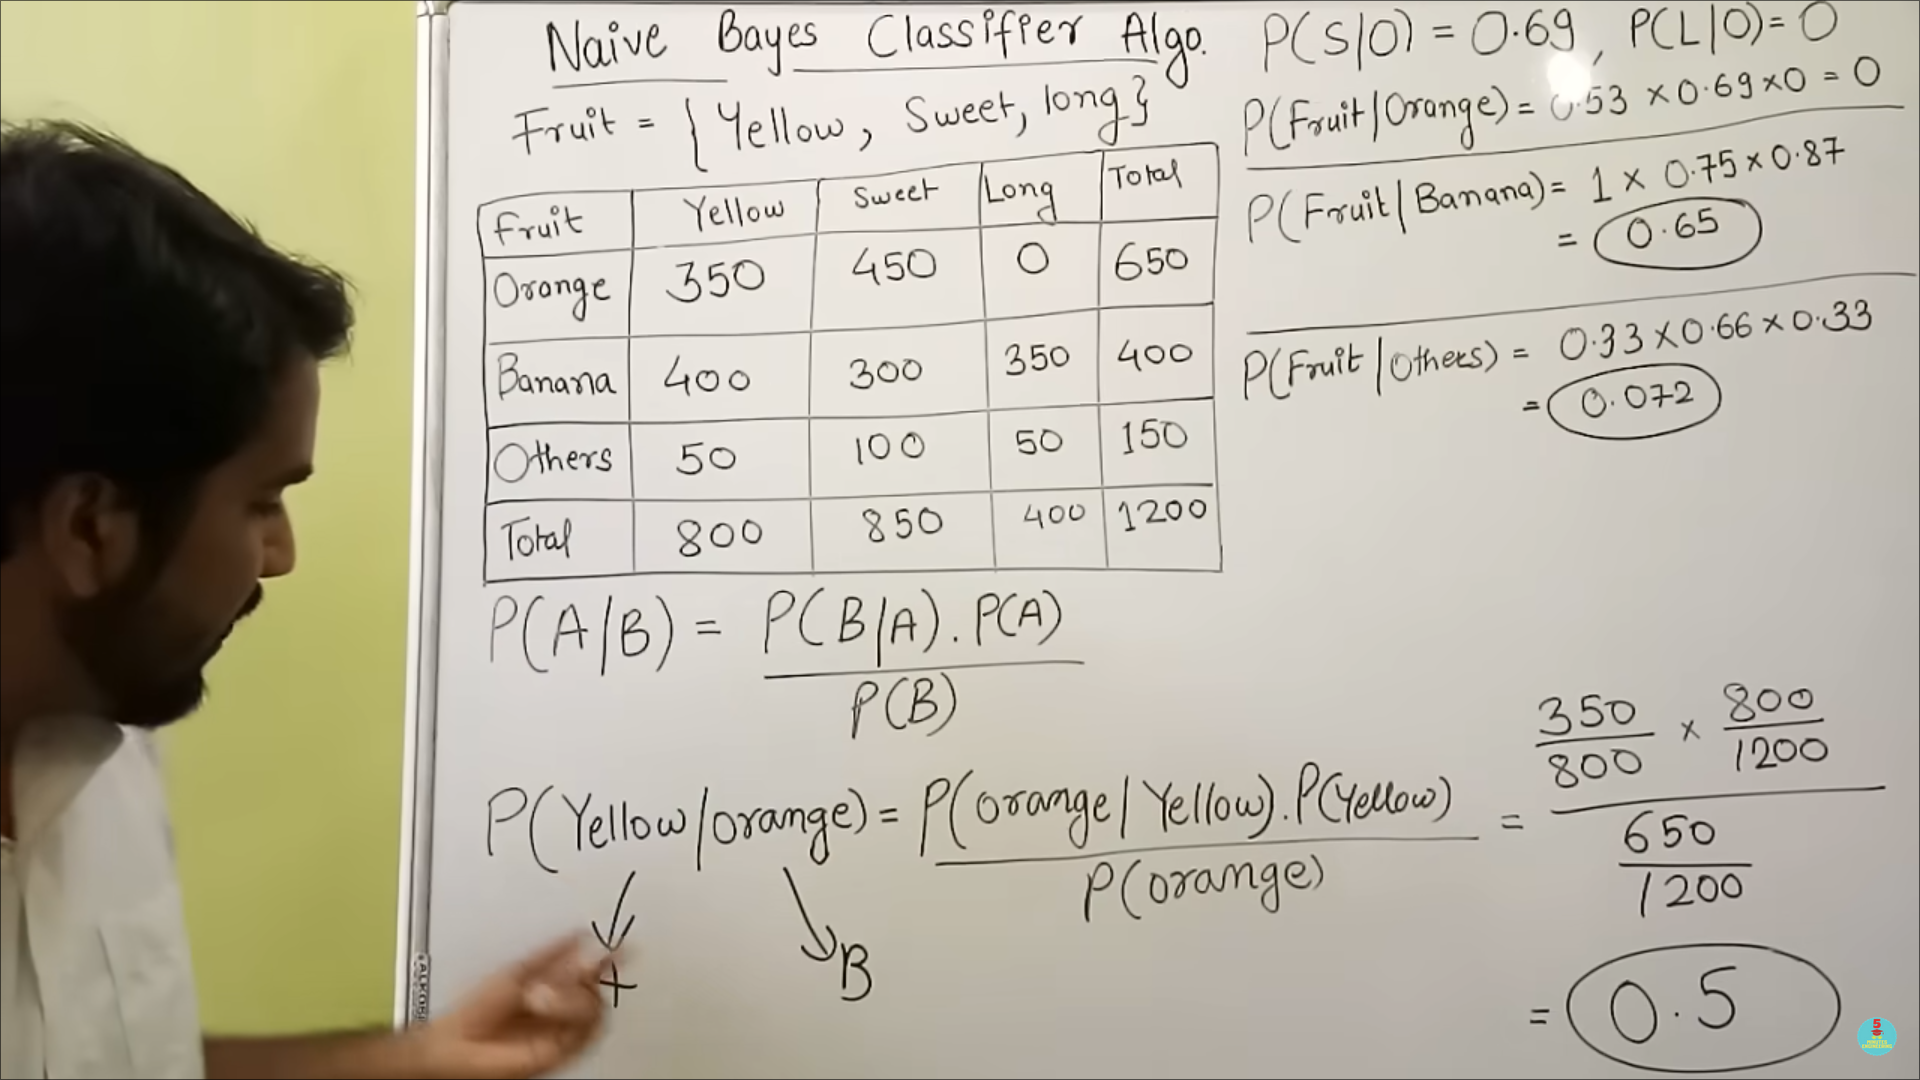 Naive Bayes Classifier Algo.
Fruit = {Yellow, Sweet, long}
Fruit Yellow Sweet Long Total
Orange 350 450 0 650
Banana 400 300 350 400
Others 50 100 50 150
Total 800 850 400 1200
P(A/B) = P(B/A).P(A)
P(B)
P(Yellow/orange) = P(orange/Yellow).P(Yellow)
P(orange)
= 350/800 × 800/1200
650/1200
= 0.5
B
P(S/O) = 0.69, P(L/O) = 0
P(Fruit/Orange) = 0.53 × 0.69 × 0 = 0
P(Fruit/Banana) = 1 × 0.75 × 0.87
= 0.65
P(Fruit/Others) = 0.33 × 0.66 × 0.33
= 0.072
5